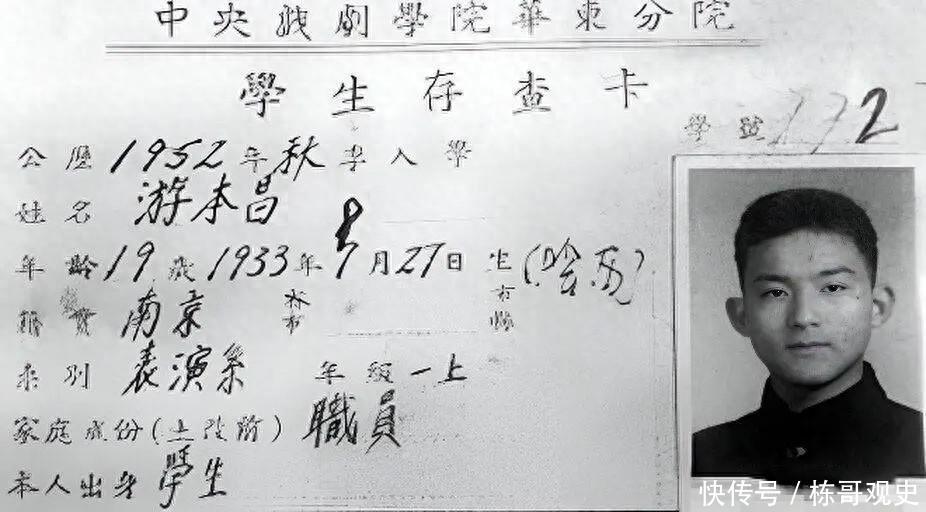 中央戲劇學院華東分院
學生存查卡
學號 172
公曆1952年秋季入學
姓名 游本昌
年齡19歲1933年 月27日生
籍貫 南京 市
系別 表演系 年級一上
家庭成份(土改前) 職員
本人出身 學生
快传号/栋哥观史